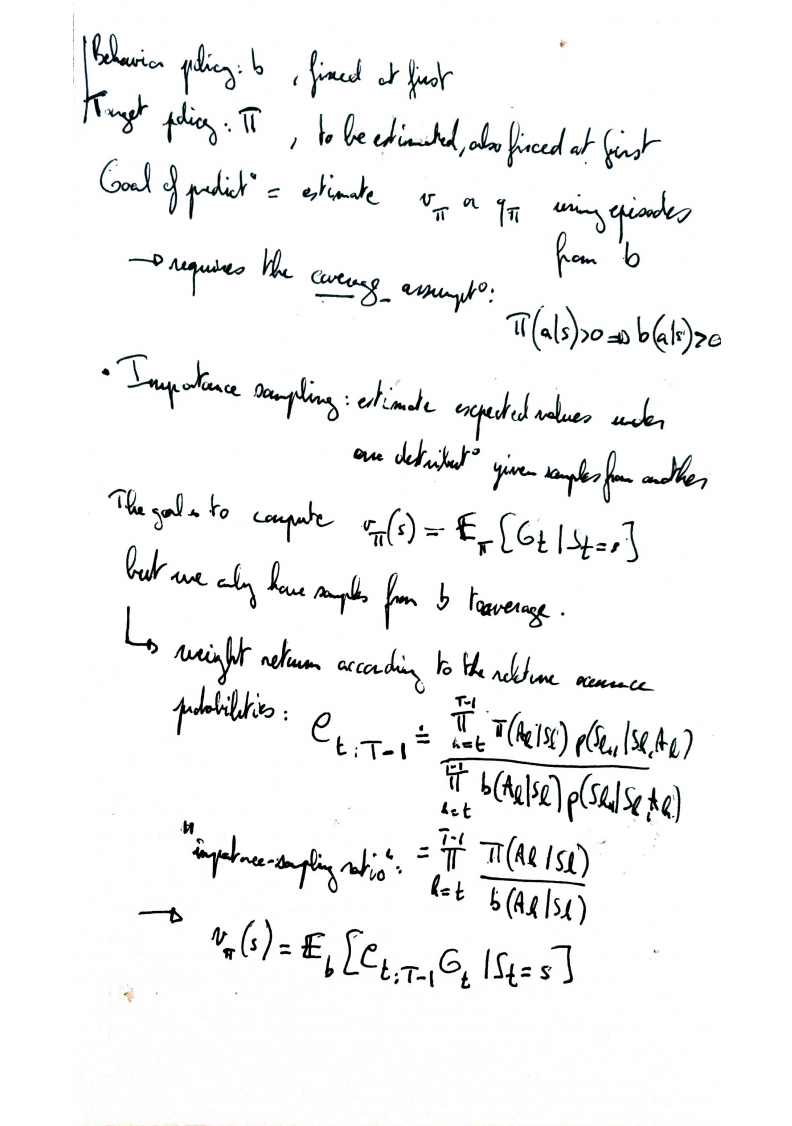 Behavior policy: b , fixed at first
Target policy: π , to be estimated, also fixed at first
Goal of predict° = estimate v_π or q_π using episodes
from b
→ requires the coverage assumpt°:
π(a|s)>0 ⇒ b(a|s)>0
• Importance sampling: estimate expected values under
one distribut° given samples from another
The goal is to compute v_π(s) = 𝔼_π[G_t | S_t=s]
but we only have samples from b to average.
↳ weight returns according to the relative occurence
probabilities: ρ_{t:T-1} ≐ ∏_{k=t}^{T-1} π(A_k|S_k) p(S_{k+1}|S_k,A_k) / ∏_{k=t}^{T-1} b(A_k|S_k) p(S_{k+1}|S_k,A_k)
"importance-sampling ratio": = ∏_{k=t}^{T-1} π(A_k|S_k) / b(A_k|S_k)
→ v_π(s) = 𝔼_b[ρ_{t:T-1} G_t | S_t = s]